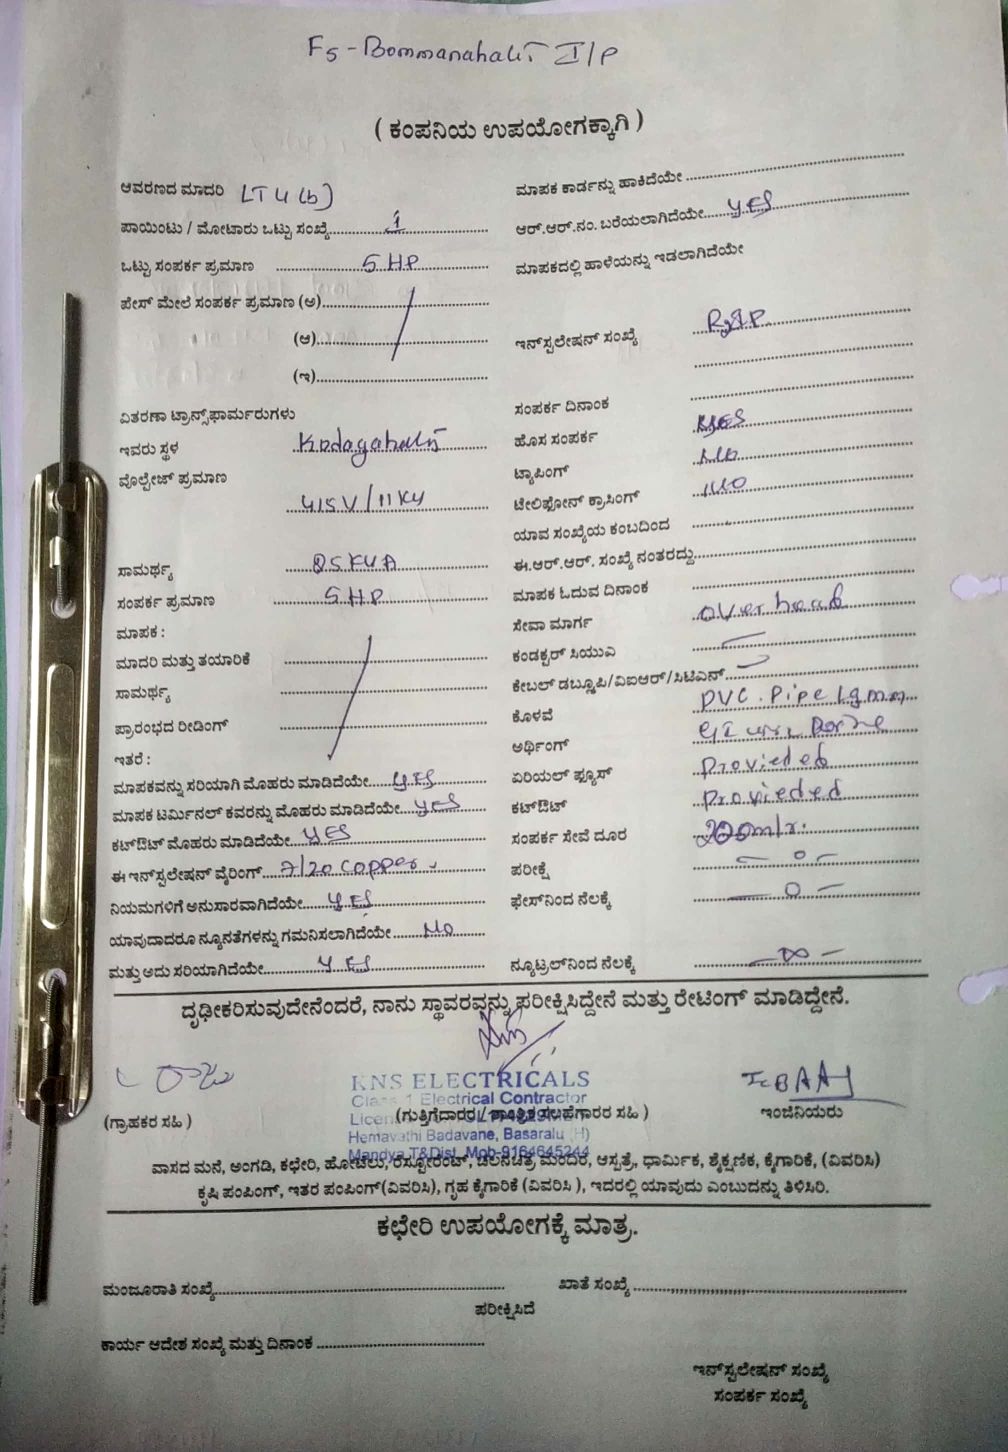 F5 - Bommanahalli I/P
( ಕಂಪನಿಯ ಉಪಯೋಗಕ್ಕಾಗಿ )
ಆವರಣದ ಮಾದರಿ LT 4 (b)
ಪಾಯಿಂಟು / ಮೋಟಾರು ಒಟ್ಟು ಸಂಖ್ಯೆ 1
ಒಟ್ಟು ಸಂಪರ್ಕ ಪ್ರಮಾಣ 5 HP
ಪೇಸ್ ಮೇಲೆ ಸಂಪರ್ಕ ಪ್ರಮಾಣ (ಅ)
(ಆ)
(ಇ)
ವಿತರಣಾ ಟ್ರಾನ್ಸ್‌ಫಾರ್ಮರುಗಳು
ಇವರು ಸ್ಥಳ Kodagahalli
ವೊಲ್ಟೇಜ್ ಪ್ರಮಾಣ
415 V / 11 KV
ಸಾಮರ್ಥ್ಯ 25 KVA
ಸಂಪರ್ಕ ಪ್ರಮಾಣ 5 HP
ಮಾಪಕ :
ಮಾದರಿ ಮತ್ತು ತಯಾರಿಕೆ
ಸಾಮರ್ಥ್ಯ
ಪ್ರಾರಂಭದ ರೀಡಿಂಗ್
ಇತರೆ :
ಮಾಪಕವನ್ನು ಸರಿಯಾಗಿ ಮೊಹರು ಮಾಡಿದೆಯೇ YES
ಮಾಪಕ ಟರ್ಮಿನಲ್ ಕವರನ್ನು ಮೊಹರು ಮಾಡಿದೆಯೇ YES
ಕಟ್‌ಔಟ್ ಮೊಹರು ಮಾಡಿದೆಯೇ YES
ಈ ಇನ್‌ಸ್ಟಲೇಷನ್ ವೈರಿಂಗ್ 7/20 copper
ನಿಯಮಗಳಿಗೆ ಅನುಸಾರವಾಗಿದೆಯೇ YES
ಯಾವುದಾದರೂ ನ್ಯೂನತೆಗಳನ್ನು ಗಮನಿಸಲಾಗಿದೆಯೇ No
ಮತ್ತು ಅದು ಸರಿಯಾಗಿದೆಯೇ YES
ಮಾಪಕ ಕಾರ್ಡನ್ನು ಹಾಕಿದೆಯೇ
ಆರ್.ಆರ್.ನಂ. ಬರೆಯಲಾಗಿದೆಯೇ YES
ಮಾಪಕದಲ್ಲಿ ಹಾಳೆಯನ್ನು ಇಡಲಾಗಿದೆಯೇ
ಇನ್‌ಸ್ಟಲೇಷನ್ ಸಂಖ್ಯೆ
ಸಂಪರ್ಕ ದಿನಾಂಕ
ಹೊಸ ಸಂಪರ್ಕ YES
ಟ್ಯಾಪಿಂಗ್ NO
ಟೇಲಿಫೋನ್ ಕ್ರಾಸಿಂಗ್ NO
ಯಾವ ಸಂಖ್ಯೆಯ ಕಂಬದಿಂದ
ಈ.ಆರ್.ಆರ್. ಸಂಖ್ಯೆ ನಂತರದ್ದು
ಮಾಪಕ ಓದುವ ದಿನಾಂಕ
ಸೇವಾ ಮಾರ್ಗ over head
ಕಂಡಕ್ಟರ್ ಸಿಯುಎ
ಕೇಬಲ್ ಡಬ್ಲೂಪಿ/ವಿಐಆರ್/ಸಿಟಿಎನ್
ಕೊಳವೆ PVC. Pipe
ಅರ್ಥಿಂಗ್ GI
ಏರಿಯಲ್ ಫ್ಯೂಸ್ Provieded
ಕಟ್‌ಔಟ್ Provieded
ಸಂಪರ್ಕ ಸೇವೆ ದೂರ 200 mtr.
ಪರೀಕ್ಷೆ – 0 –
ಫೇಸ್‌ನಿಂದ ನೆಲಕ್ಕೆ – 0 –
ನ್ಯೂಟ್ರಲ್‌ನಿಂದ ನೆಲಕ್ಕೆ
ದೃಢೀಕರಿಸುವುದೇನೆಂದರೆ, ನಾನು ಸ್ಥಾವರವನ್ನು ಪರೀಕ್ಷಿಸಿದ್ದೇನೆ ಮತ್ತು ರೇಟಿಂಗ್ ಮಾಡಿದ್ದೇನೆ.
KNS ELECTRICALS
Class 1 Electrical Contractor
(ಗ್ರಾಹಕರ ಸಹಿ ) (ಗುತ್ತಿಗೆದಾರರ / ತಾಂತ್ರಿಕ ಸಲಹೆಗಾರರ ಸಹಿ ) ಇಂಜಿನಿಯರು
Hemavathi Badavane, Basaralu (H)
Mandya T&Dist. Mob-9164645244
ವಾಸದ ಮನೆ, ಅಂಗಡಿ, ಕಛೇರಿ, ಹೋಟೆಲು, ರೆಸ್ಟೋರೆಂಟ್, ಚಲನಚಿತ್ರ ಮಂದಿರ, ಆಸ್ಪತ್ರೆ, ಧಾರ್ಮಿಕ, ಶೈಕ್ಷಣಿಕ, ಕೈಗಾರಿಕೆ, (ವಿವರಿಸಿ)
ಕೃಷಿ ಪಂಪಿಂಗ್, ಇತರ ಪಂಪಿಂಗ್(ವಿವರಿಸಿ), ಗೃಹ ಕೈಗಾರಿಕೆ (ವಿವರಿಸಿ ), ಇದರಲ್ಲಿ ಯಾವುದು ಎಂಬುದನ್ನು ತಿಳಿಸಿರಿ.
ಕಛೇರಿ ಉಪಯೋಗಕ್ಕೆ ಮಾತ್ರ.
ಮಂಜೂರಾತಿ ಸಂಖ್ಯೆ ಖಾತೆ ಸಂಖ್ಯೆ
ಪರೀಕ್ಷಿಸಿದೆ
ಕಾರ್ಯ ಆದೇಶ ಸಂಖ್ಯೆ ಮತ್ತು ದಿನಾಂಕ
ಇನ್‌ಸ್ಟಲೇಷನ್ ಸಂಖ್ಯೆ
ಸಂಪರ್ಕ ಸಂಖ್ಯೆ